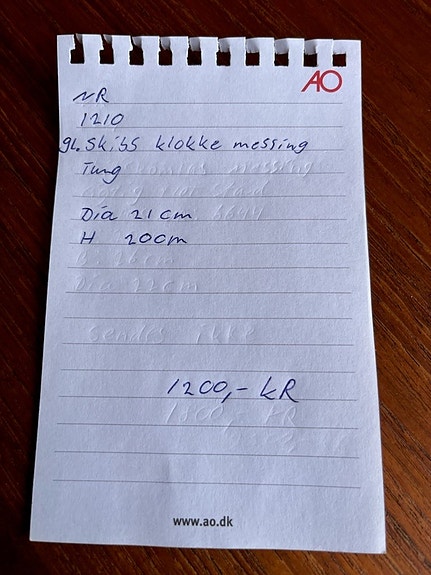 AO
NR
1210
gl. Skibs klokke messing
Tung
Dia 21cm
H 20cm
Dia 22cm
sendes ikke
1200,- kR
www.ao.dk